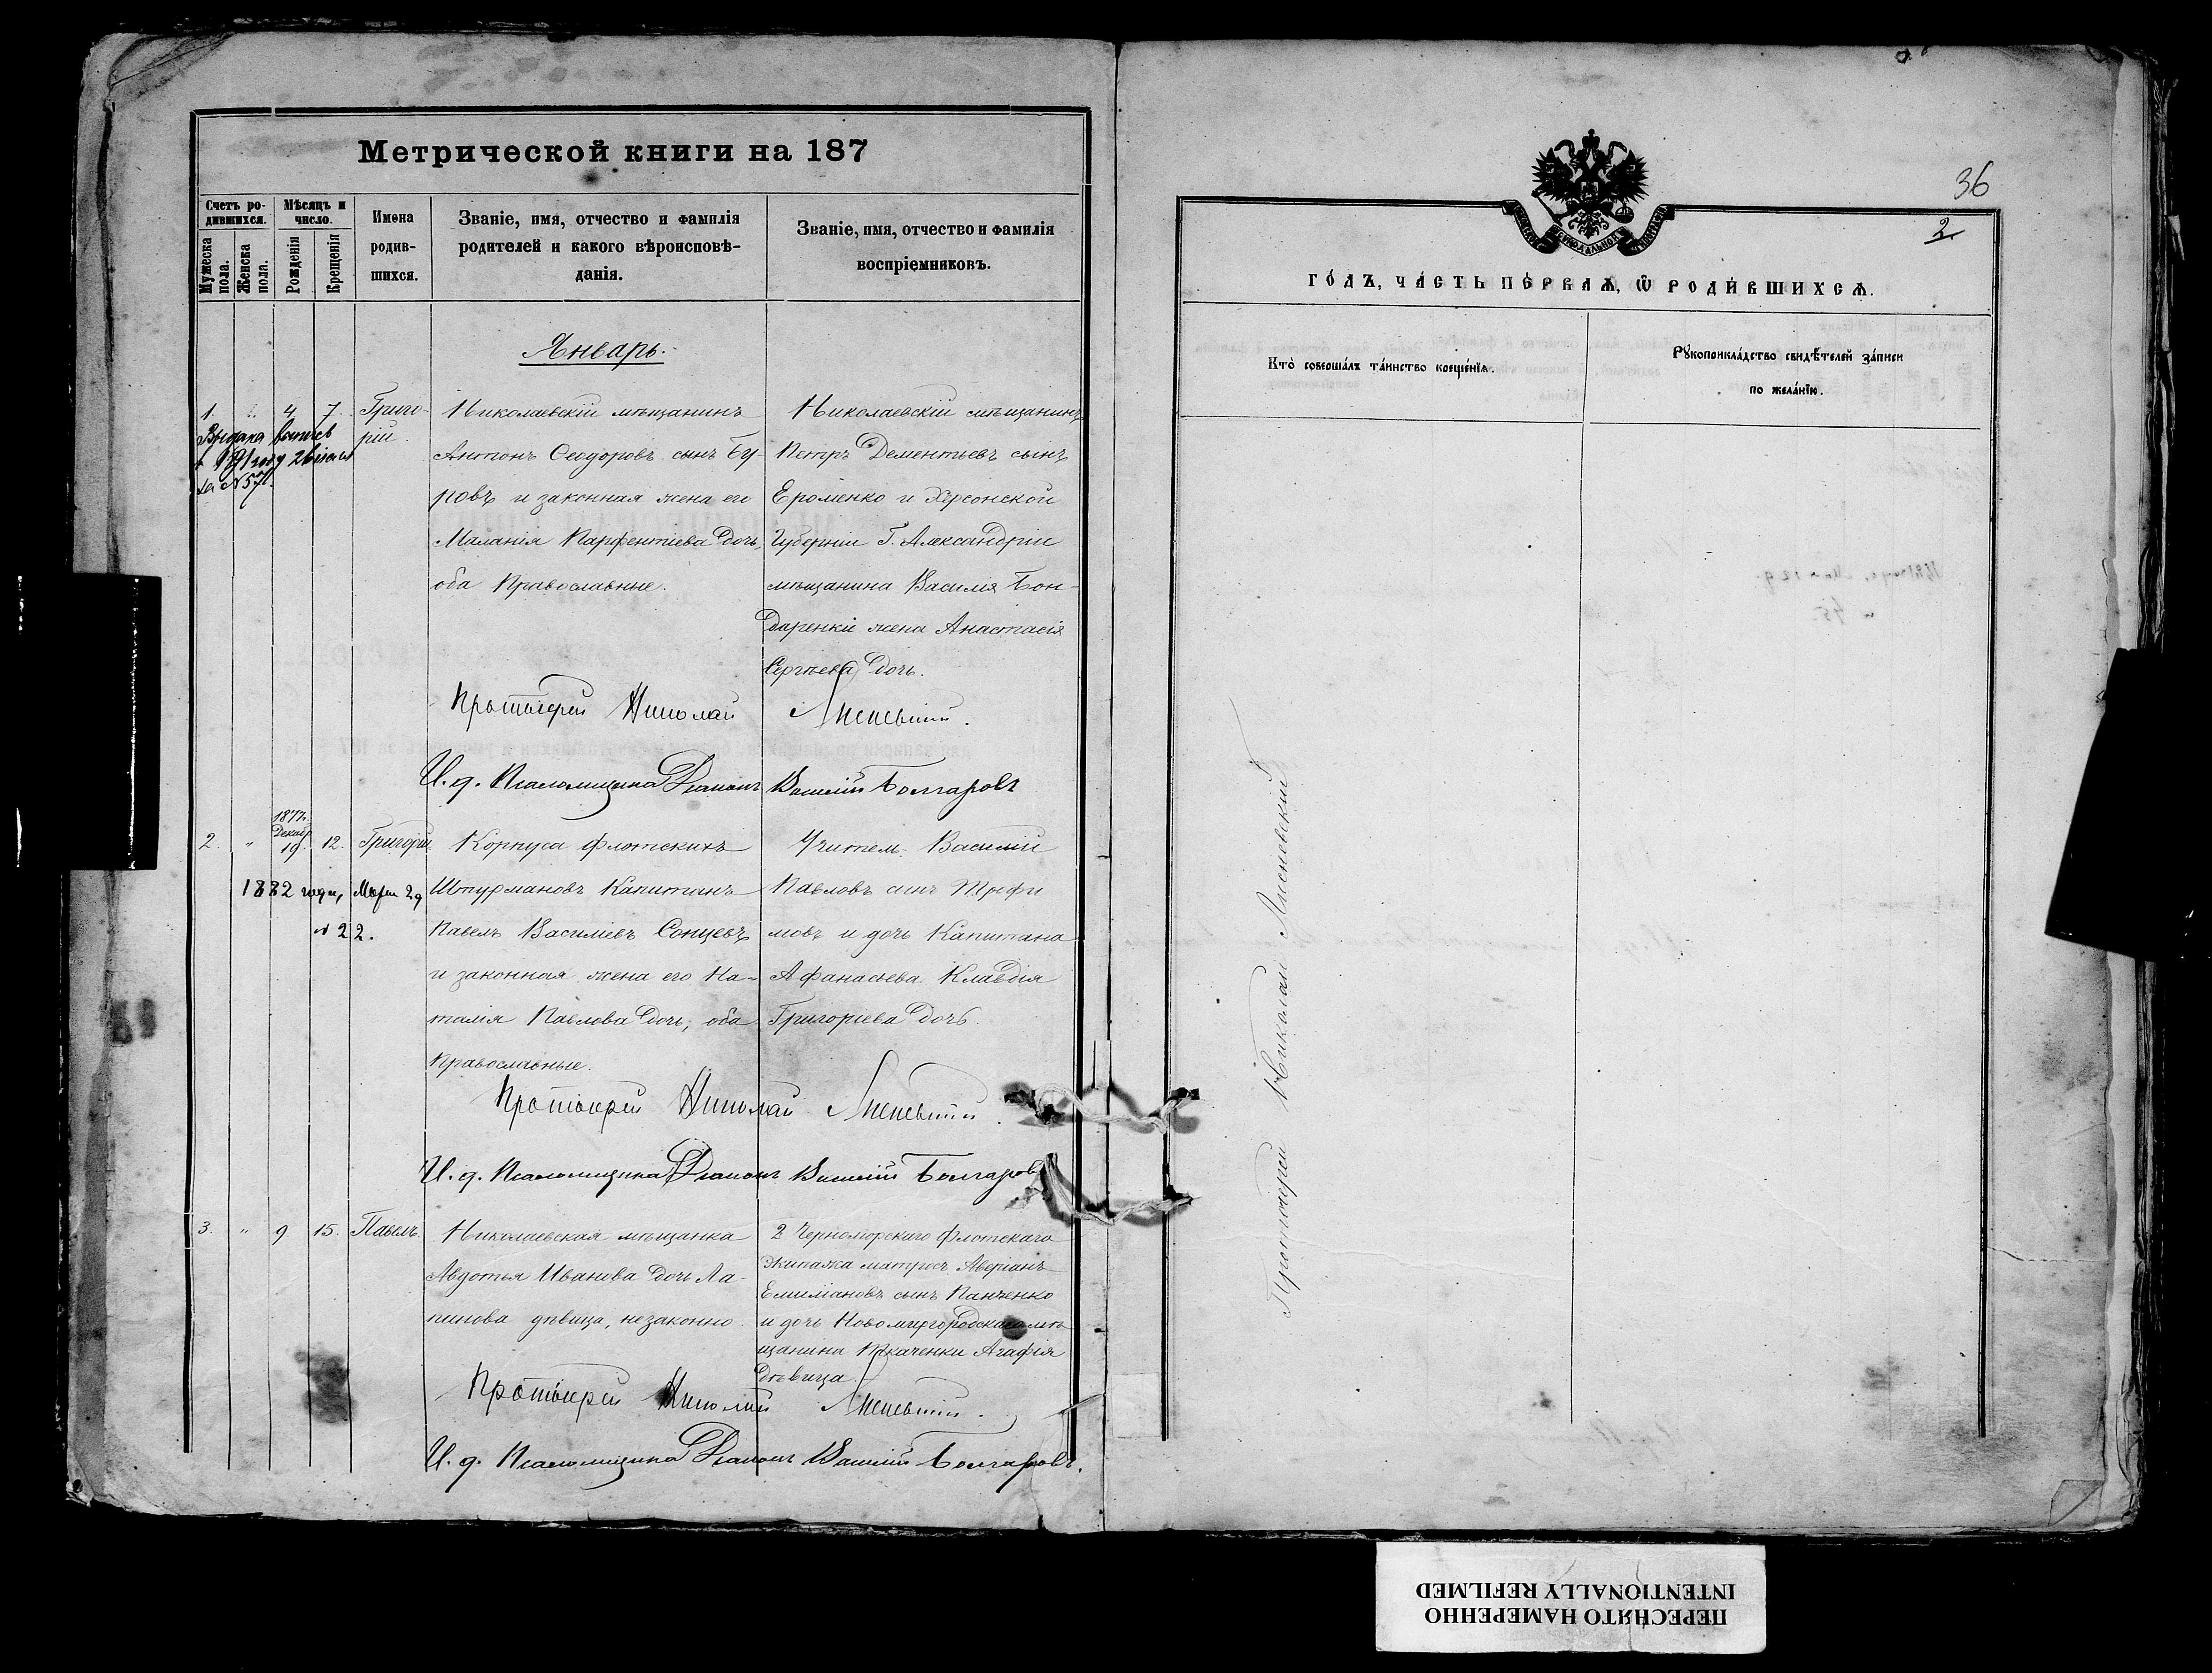 Метрической книги на 187
Счетъ ро-
дившихся.
Мѣсяцъ и
число.
Мужеска
пола.
Женска
пола.
Рожденія
Крещенія
Имена
родив-
шихся.
Званіе, имя, отчество и фамилія
родителей и какого вѣроисповѣ-
данія.
Званіе, имя, отчество и фамилія
воспріемниковъ.
Январь.
1. 4 7. Григо-
рій.
году
№ 57.
Николаевскій мѣщанинъ
Антонъ Ѳеодоровъ сынъ Бу-
ровъ и законная жена его
Маланія Парфентіева дочь,
оба Православные.
Николаевскій мѣщанинъ
Петръ Дементьевъ сынъ
Ероменко и Херсонской
Губерніи Г. Александріи
мѣщанина Василія Бон-
даренки жена Анастасія
Сергѣева дочь.
Протоіерей Николай
И. д. Псаломщика Діаконъ Василій Болгаровъ
2. " 1877. Декабр. 19. 12. Григорій.
1882 года, Мар 29
№ 22.
Корпуса флотскихъ
Штурмановъ Капитанъ
Павелъ Василіевъ Сонцевъ
и законная жена его На-
талія Павлова дочь, оба
Православные.
Учитель Василій
Павловъ сынъ Трофи
мовъ и дочь Капитана
Афанасьева Клавдія
Григоріева дочь.
Протоіерей Николай
И. д. Псаломщика Діаконъ Василій Болгаровъ
3. " 9 15. Павелъ.
Николаевская мѣщанка
Авдотья Иванова дочь Ла-
пинова дѣвица, незаконно
2 Черноморскаго флотскаго
экипажа матросъ Аверіанъ
Емиліановъ сынъ Панченко
и дочь Новомиргородскаго мѣ
щанина Ткаченки Агафія
дѣвица.
Протоіерей Николай
И. д. Псаломщика Діаконъ Василій Болгаровъ.
36
2.
го́дъ, ча́сть пе́рваѧ, ѡ роди́вшихсѧ.
Кто̀ соверша́лъ та́инство креще́нїѧ.
Рꙋкоприкла́дство свидѣ́телей за́писи
по жела́нїю.
Протоіерей Николай
ПЕРЕСНЯТО НАМЕРЕННО
INTENTIONALLY REFILMED